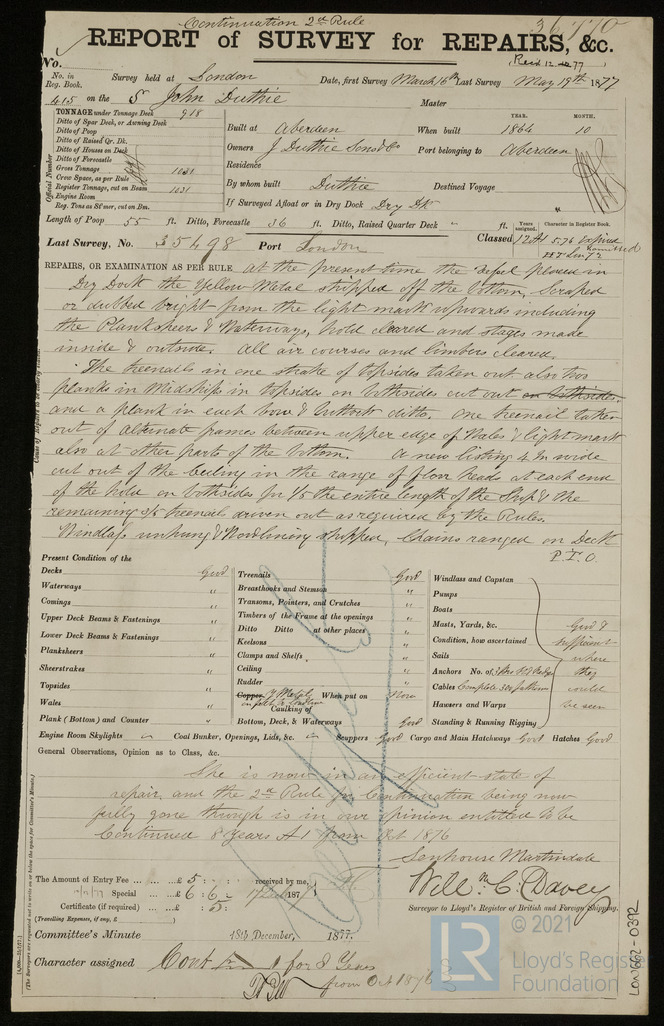 Continuation 2nd Rule
36770
REPORT of SURVEY for REPAIRS, &c.
No.
No. in Reg. Book. Survey held at London Date, first Survey March 16th Last Survey May 19th 1877
415 on the S John Duthie Master
TONNAGE under Tonnage Deck 918
Ditto of Spar Deck, or Awning Deck
Ditto of Poop
Ditto of Raised Qr. Dk.
Ditto of Houses on Deck
Ditto of Forecastle
Gross Tonnage 1031
Crew Space, as per Rule
Register Tonnage, cut on Beam 1031
Engine Room
Reg. Tons as St'mer, cut on Bm.
Official Number
YEAR. MONTH.
Built at Aberdeen When built 1864 10
Owners J Duthie Sons & Co Port belonging to Aberdeen
Residence
By whom built Duthie Destined Voyage
If Surveyed Afloat or in Dry Dock Dry Dk
Length of Poop 55 ft. Ditto, Forecastle 36 ft. Ditto, Raised Quarter Deck - ft.
Years assigned. Character in Register Book.
Last Survey, No. 35498 Port London Classed 12 A1 5.76 expired
REPAIRS, OR EXAMINATION AS PER RULE at the present time the vessel placed in
Dry Dock the Yellow Metal stripped off the bottom, scraped
or dubbed bright from the light mark upwards including
the Planksheers & Waterways, hold cleared and stages made
inside & outside. All air courses and limbers cleared.
The treenails in one strake of topsides taken out also two
planks in Midships in topsides on bothsides cut out on bothsides
and a plank in each bow & buttock ditto. One treenail taken
out of alternate frames between upper edge of Wales & light mark
also at other parts of the bottom. A new listing 4 In wide
cut out of the ceiling in the range of floor heads at each end
of the hold on bothsides for 1/5 the entire length of the Ship & the
remaining 3/5 treenails driven out as required by the Rules.
Windlass unhung & Woodlining stripped, Chains ranged on Deck
P.T.O.
Present Condition of the
Decks Good
Waterways "
Comings "
Upper Deck Beams & Fastenings "
Lower Deck Beams & Fastenings "
Planksheers "
Sheerstrakes "
Topsides "
Wales "
Plank (Bottom) and Counter "
Treenails Good
Breasthooks and Stemson "
Transoms, Pointers, and Crutches "
Timbers of the Frame at the openings "
Ditto Ditto at other places "
Keelsons "
Clamps and Shelfs "
Ceiling "
Rudder "
Copper, Y Metal When put on Now
Caulking of
Bottom, Deck, & Waterways Good
Windlass and Capstan
Pumps
Boats
Masts, Yards, &c. Good &
Condition, how ascertained sufficient
Sails where
Anchors No. of they
Cables Complete 300 fathoms could
Hawsers and Warps be seen
Standing & Running Rigging
Engine Room Skylights - Coal Bunker, Openings, Lids, &c. - Scuppers Good Cargo and Main Hatchways Good Hatches Good
General Observations, Opinion as to Class, &c.
She is now in an efficient state of
repair and the 2nd Rule for Continuation being now
fully gone through is in our opinion entitled to be
Continued 8 Years A1 from Oct 1876
Senhouse Martindale
Willm. C. Davey
Surveyor to Lloyd's Register of British and Foreign Shipping.
The Amount of Entry Fee £ 5 : : received by me,
Special £ 6 : 6 : 187
Certificate (if required) : 5 :
(Travelling Expenses, if any, £ )
Committee's Minute 18th December, 1877.
Character assigned Cont A1 for 8 Years
from Oct 1876
LON662-0392
LR
© 2021
Lloyd's Register
Foundation